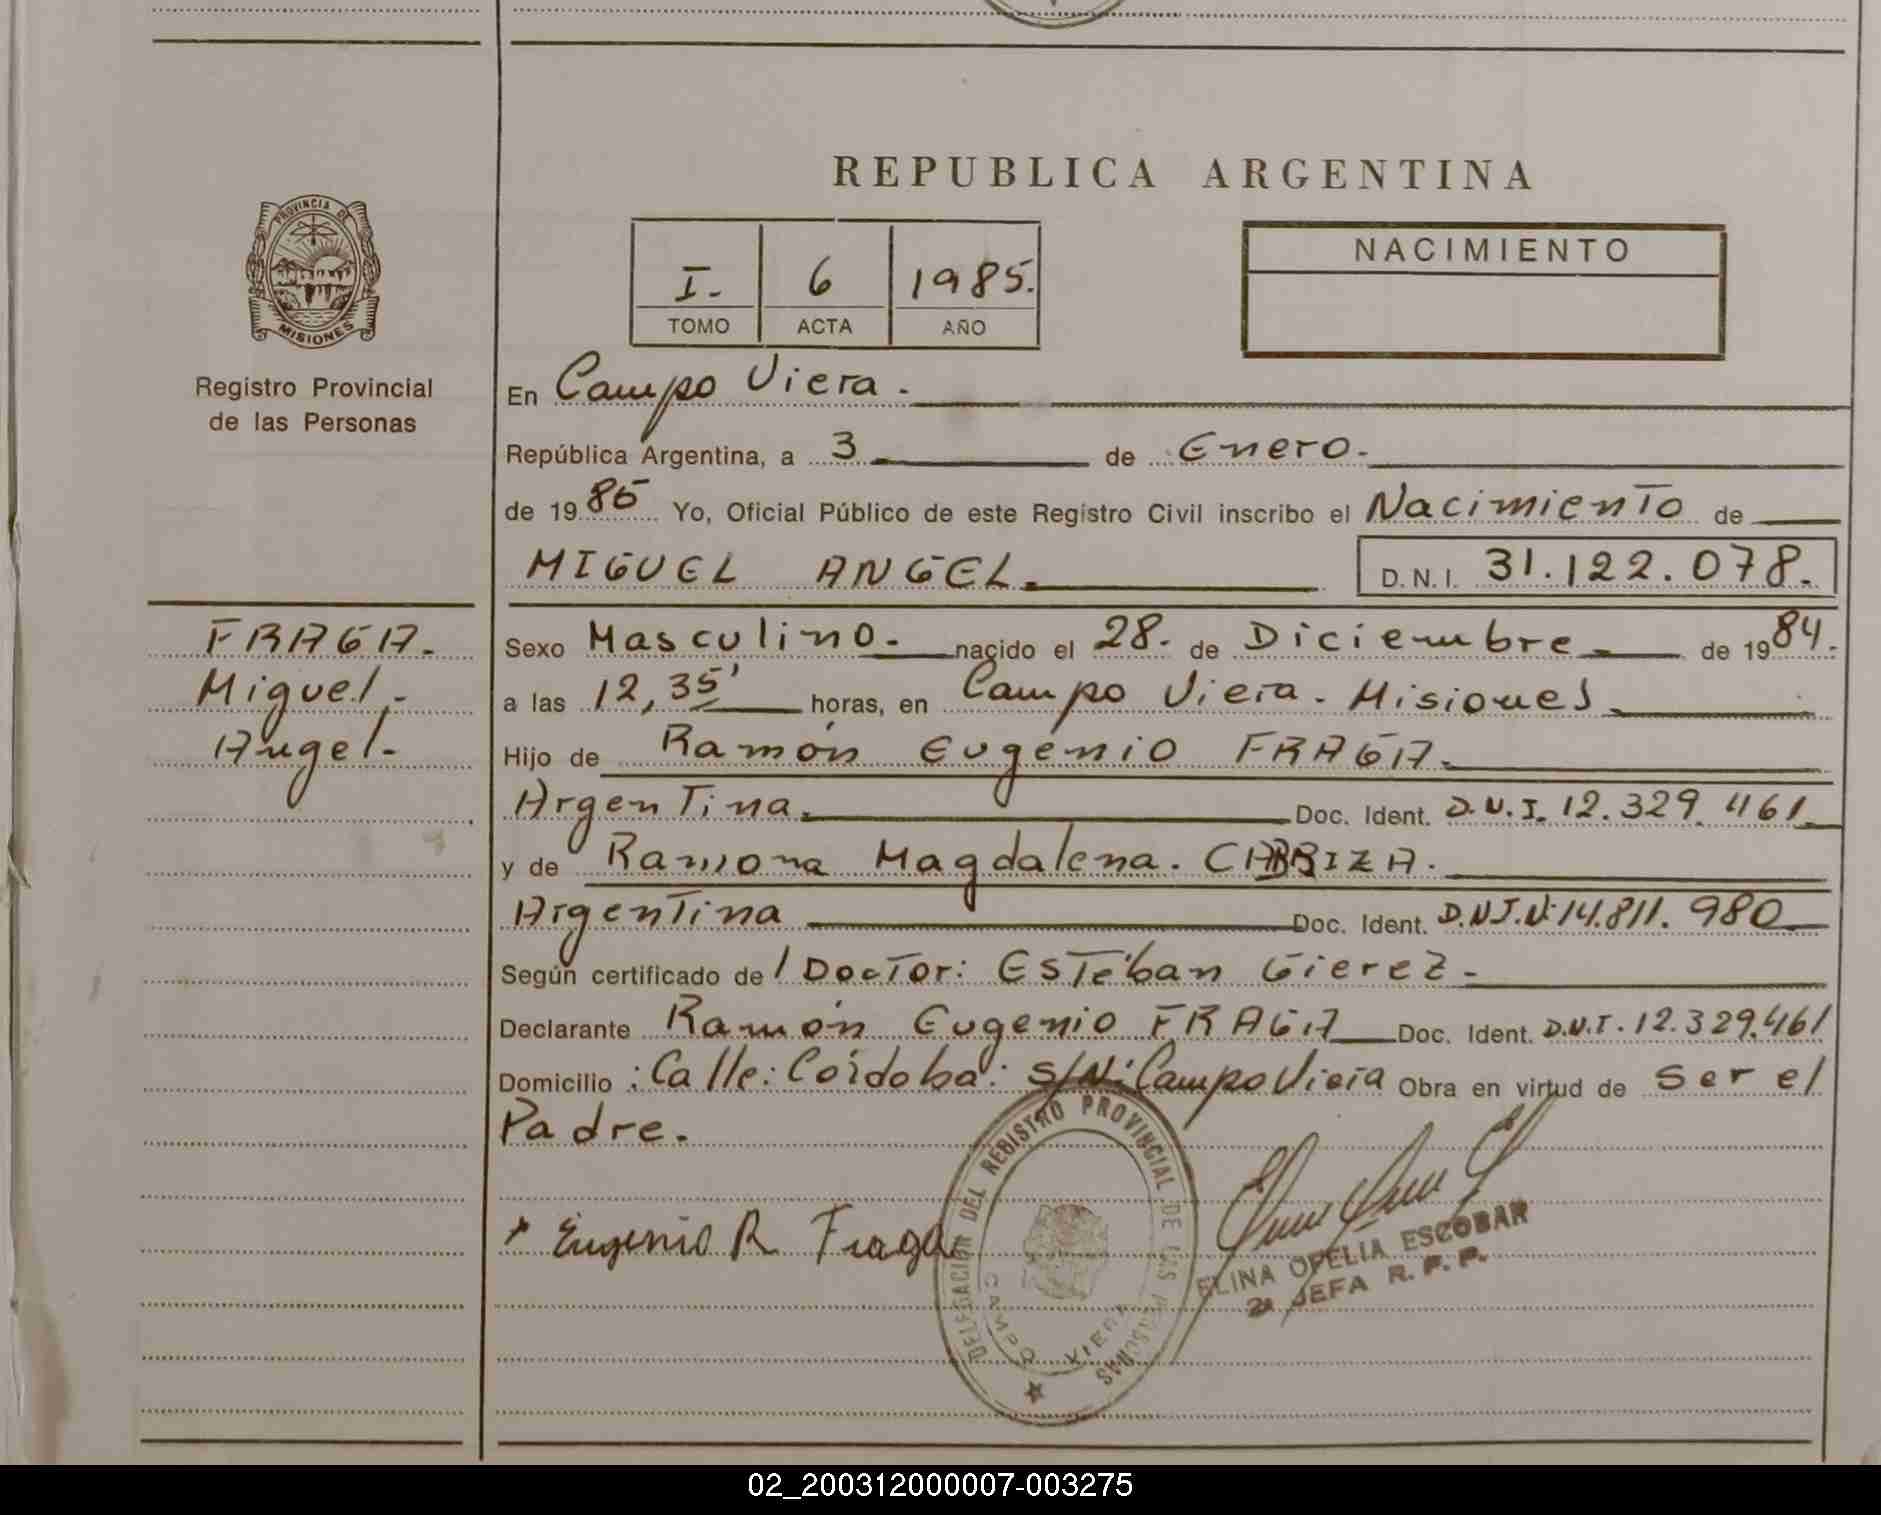 REPUBLICA ARGENTINA
PROVINCIA DE
MISIONES
Registro Provincial
de las Personas
I. 6 1985.
TOMO ACTA AÑO
NACIMIENTO
En Campo Viera.
República Argentina, a 3 de Enero.
de 1985 Yo, Oficial Público de este Registro Civil inscribo el Nacimiento de
MIGUEL ANGEL. D.N.I. 31.122.078.
FRAGA.
Miguel.
Angel.
Sexo Masculino. nacido el 28. de Diciembre de 1984.
a las 12,35' horas, en Campo Viera. Misiones
Hijo de Ramón Eugenio FRAGA.
Argentina. Doc. Ident. D.N.I. 12.329.461
y de Ramona Magdalena.
Argentina Doc. Ident. D.N.I.Nº 14.811.980
Según certificado del Doctor: Esteban Gierez.
Declarante Ramón Eugenio FRAGA Doc. Ident. D.N.I. 12.329.461
Domicilio: Calle: Córdoba: S/N: Campo Viera Obra en virtud de ser el
Padre.
Eugenio R Fraga
DELEGACIÓN DEL REGISTRO PROVINCIAL DE LAS PERSONAS
CAMPO VIERA
ELINA OFELIA ESCOBAR
2a JEFA R. P. P.
02_200312000007-003275